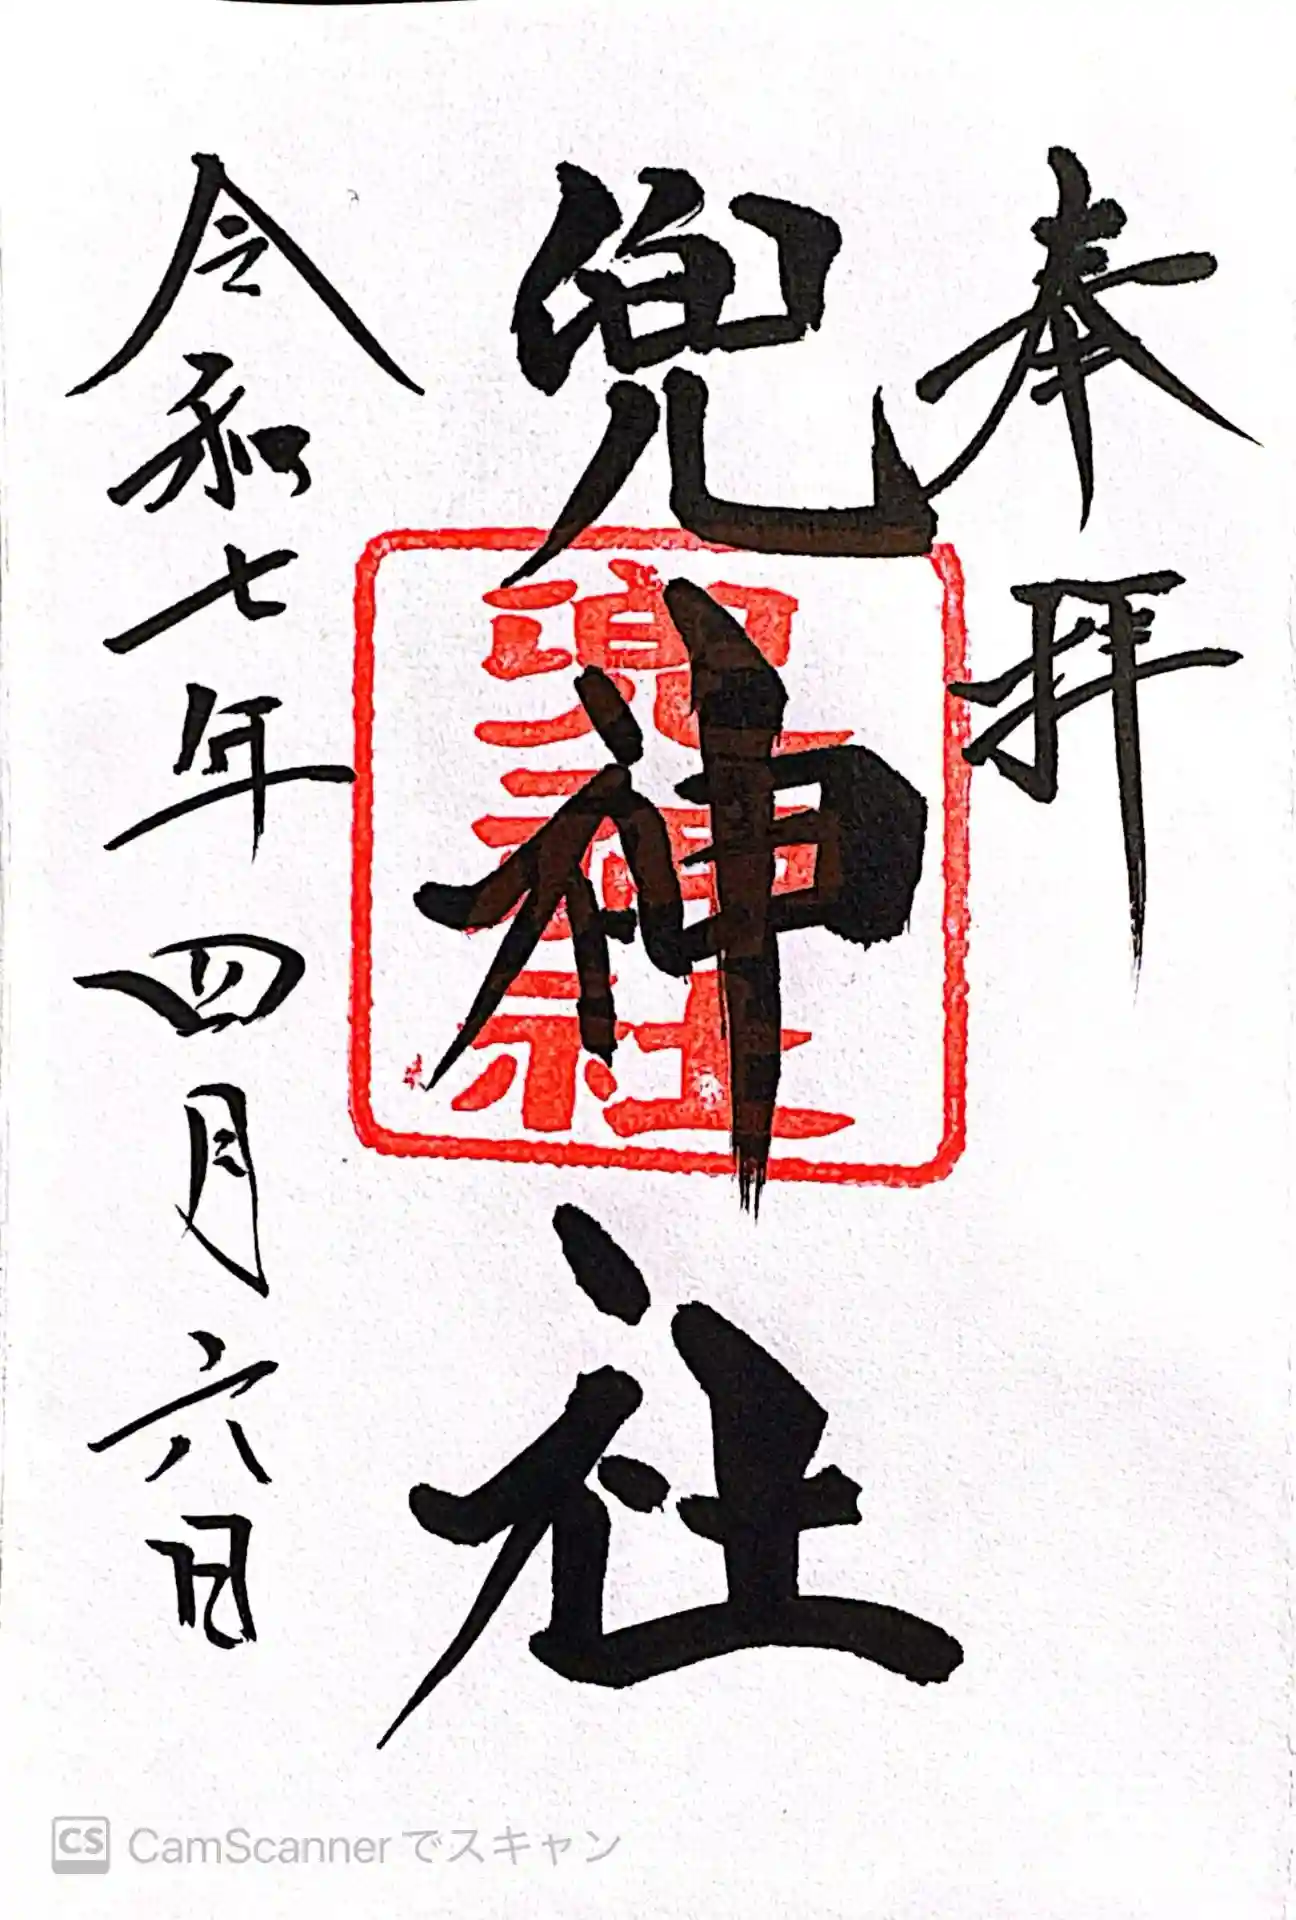 奉拝
兜神社
兜神社
令和七年四月六日
CS CamScannerでスキャン